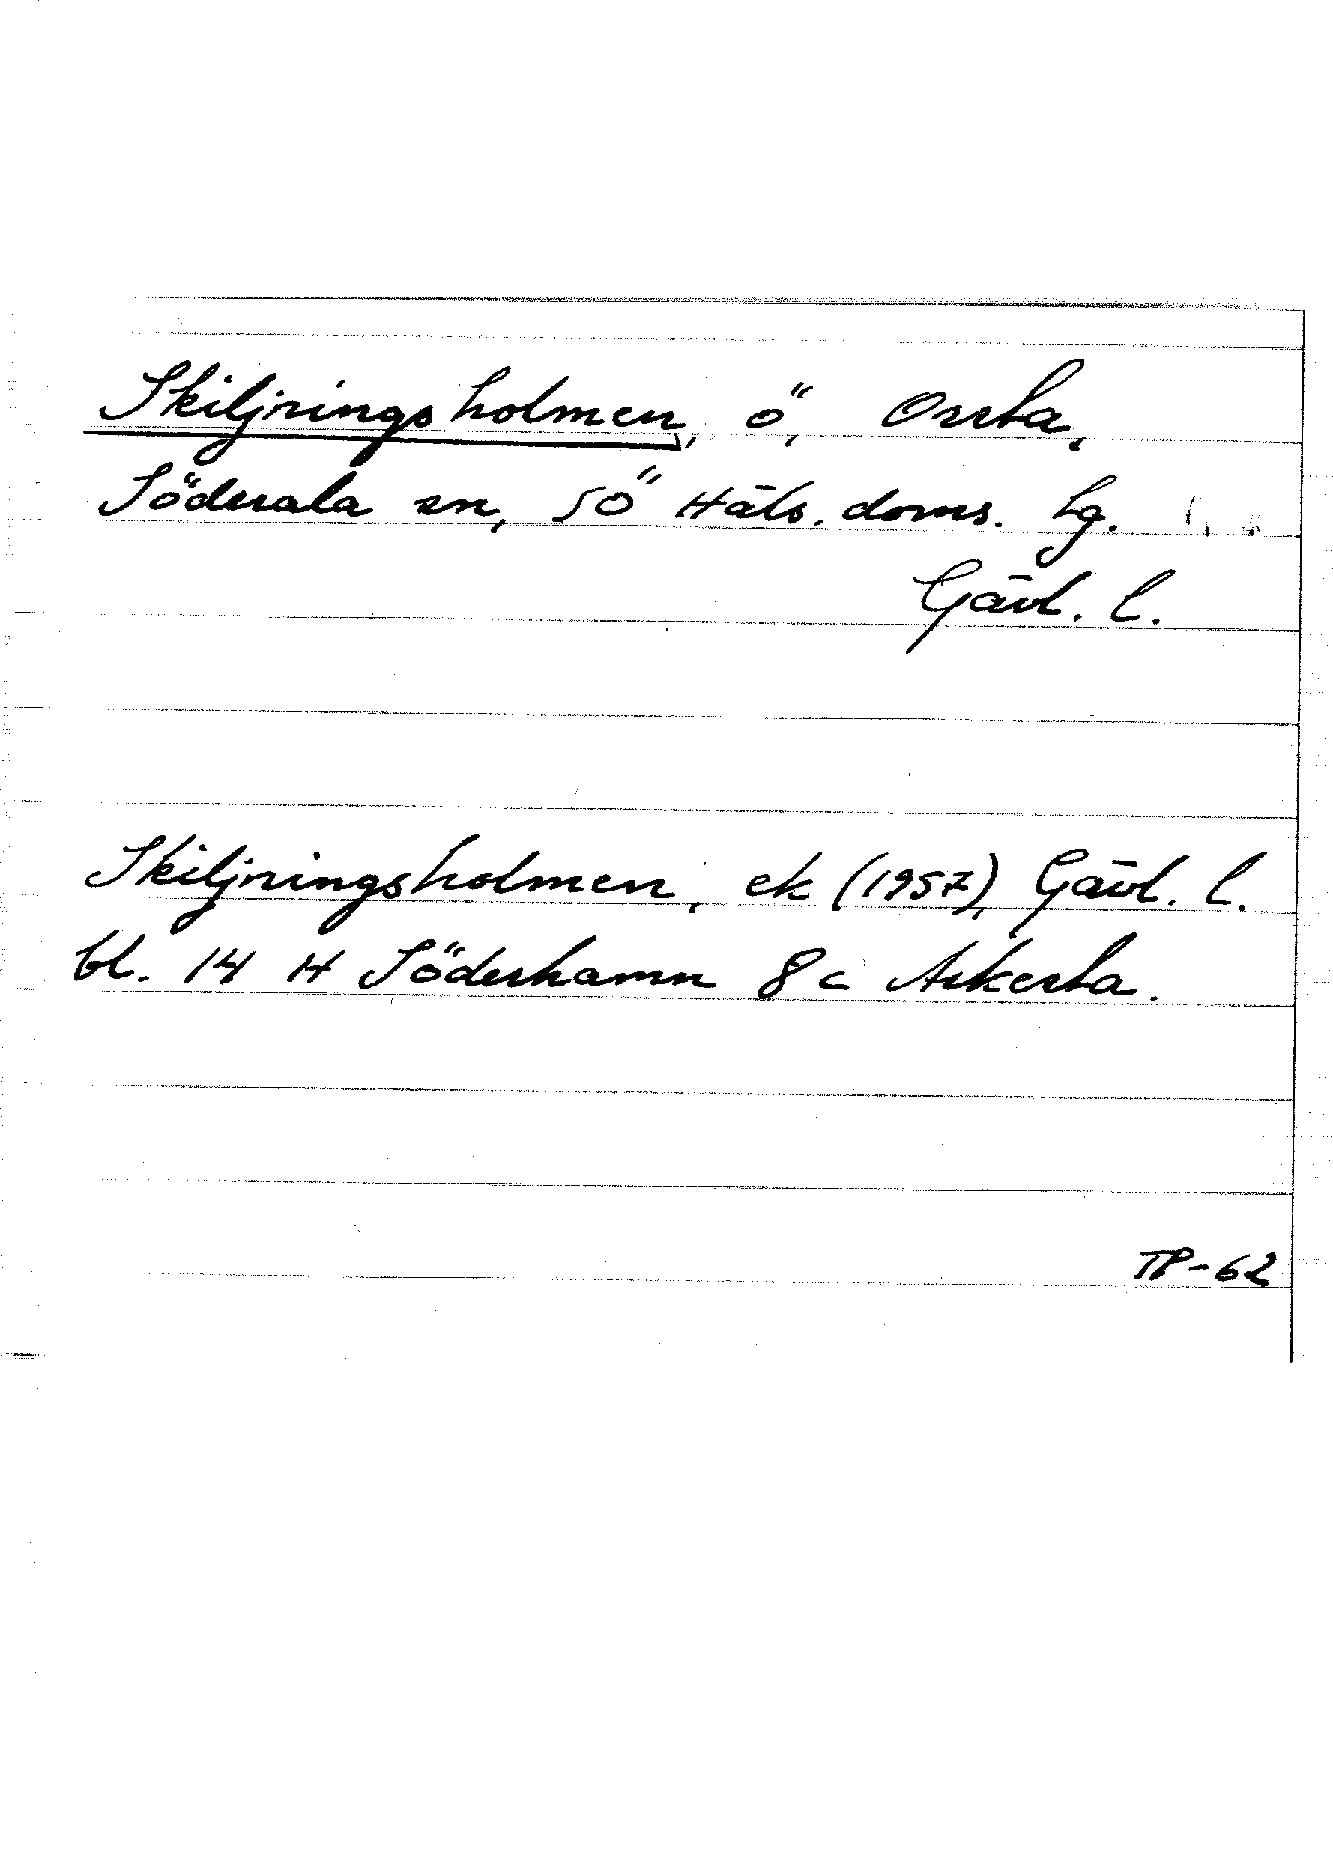 Skiljningsholmen, ö, Orsta,
Söderala sn, SÖ Häls. doms. lg.
Gävl. l.
Skiljningsholmen, ek (1957), Gävl. l.
bl. 14 H Söderhamn 8 c Askesta.
TP-62